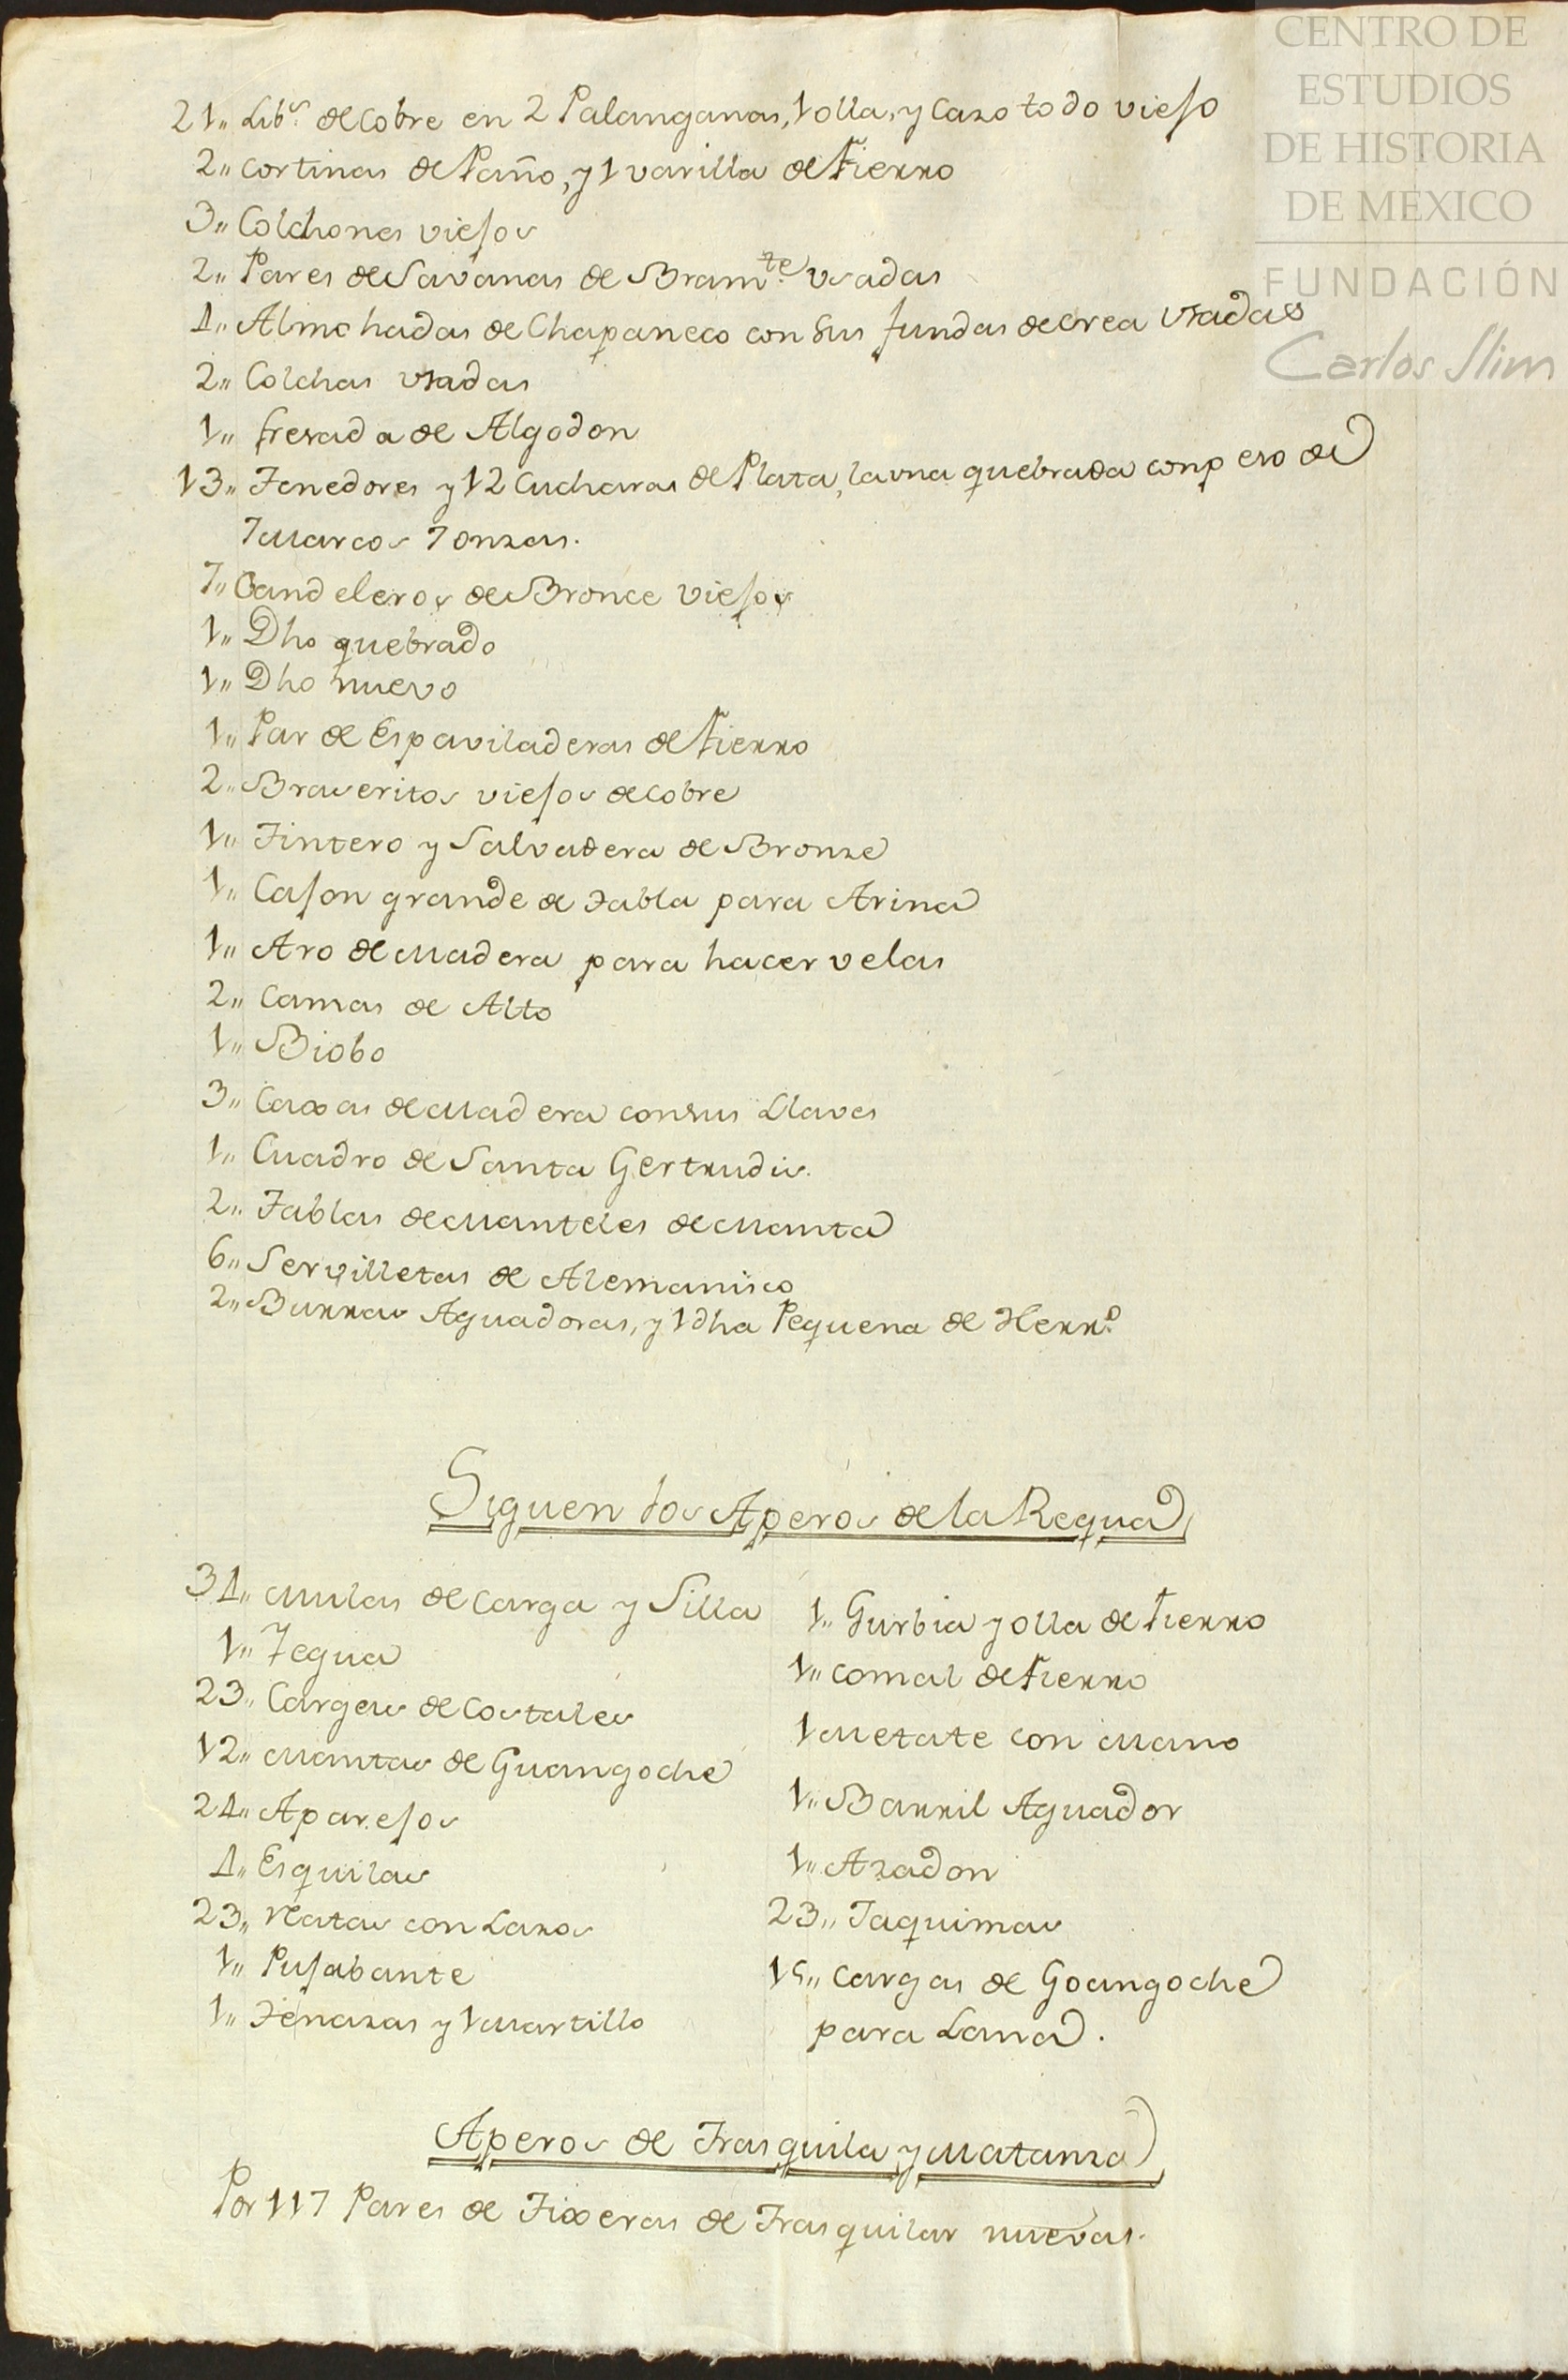 CENTRO DE
ESTUDIOS
DE HISTORIA
DE MÉXICO
FUNDACIÓN
Carlos Slim
21,, Libs. de Cobre en 2 Palanganas, 1 olla, y Cazo todo viejo
2,, Cortinas de Paño, y 1 varilla de Fierro
3,, Colchones viejos
2,, Pares de Savanas de Bramte. usadas
4,, Almohadas de Chapaneco con sus fundas de Crea usadas
2,, Colchas usadas
1,, frezada de Algodon
13,, Tenedores y 12 Cucharas de Plata, la una quebrada con peso de
7 Marcos 7 onzas.
7,, Candeleros de Bronce viejos
1,, Dho quebrado
1,, Dho nuevo
1,, Par de Espaviladeras de Fierro
2,, Braseritos viejos de Cobre
1,, Tintero y Salvadera de Bronze
1,, Cajon grande de Tabla para Arina
1,, Aro de Madera para hacer velas
2,, Camas de Alto
1,, Biobo
3,, Caxas de Madera con sus Llaves
1,, Cuadro de Santa Gertrudis.
2,, Tablas de Manteles de Manta
6,, Servilletas de Alemanisco
2,, Burras Aguadoras, y 1 dha Pequena de Herro.
Siguen los Aperos de la Requa
34,, Mulas de Carga y Silla
1,, Yegua
23,, Cargas de Costales
12,, Mantas de Guangoche
24,, Aparejos
4,, Esquilas
23,, Reatas con Lazos
1,, Pujabante
1,, Tenazas y 1 Martillo
1,, Gurbia y olla de Fierro
1,, Comal de Fierro
1 Metate con Mano
1,, Barril Aguador
1,, Azadon
23,, Taquimas
15,, Cargas de Goangoche
para Lana.
Aperos de Trasquila y Matanza
Por 117 Pares de Tixeras de Trasquilar nuevas.